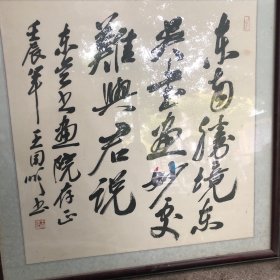 东南胜境东
吴书画妙处
难与君说
东吴书画院存正
壬辰年王国明书